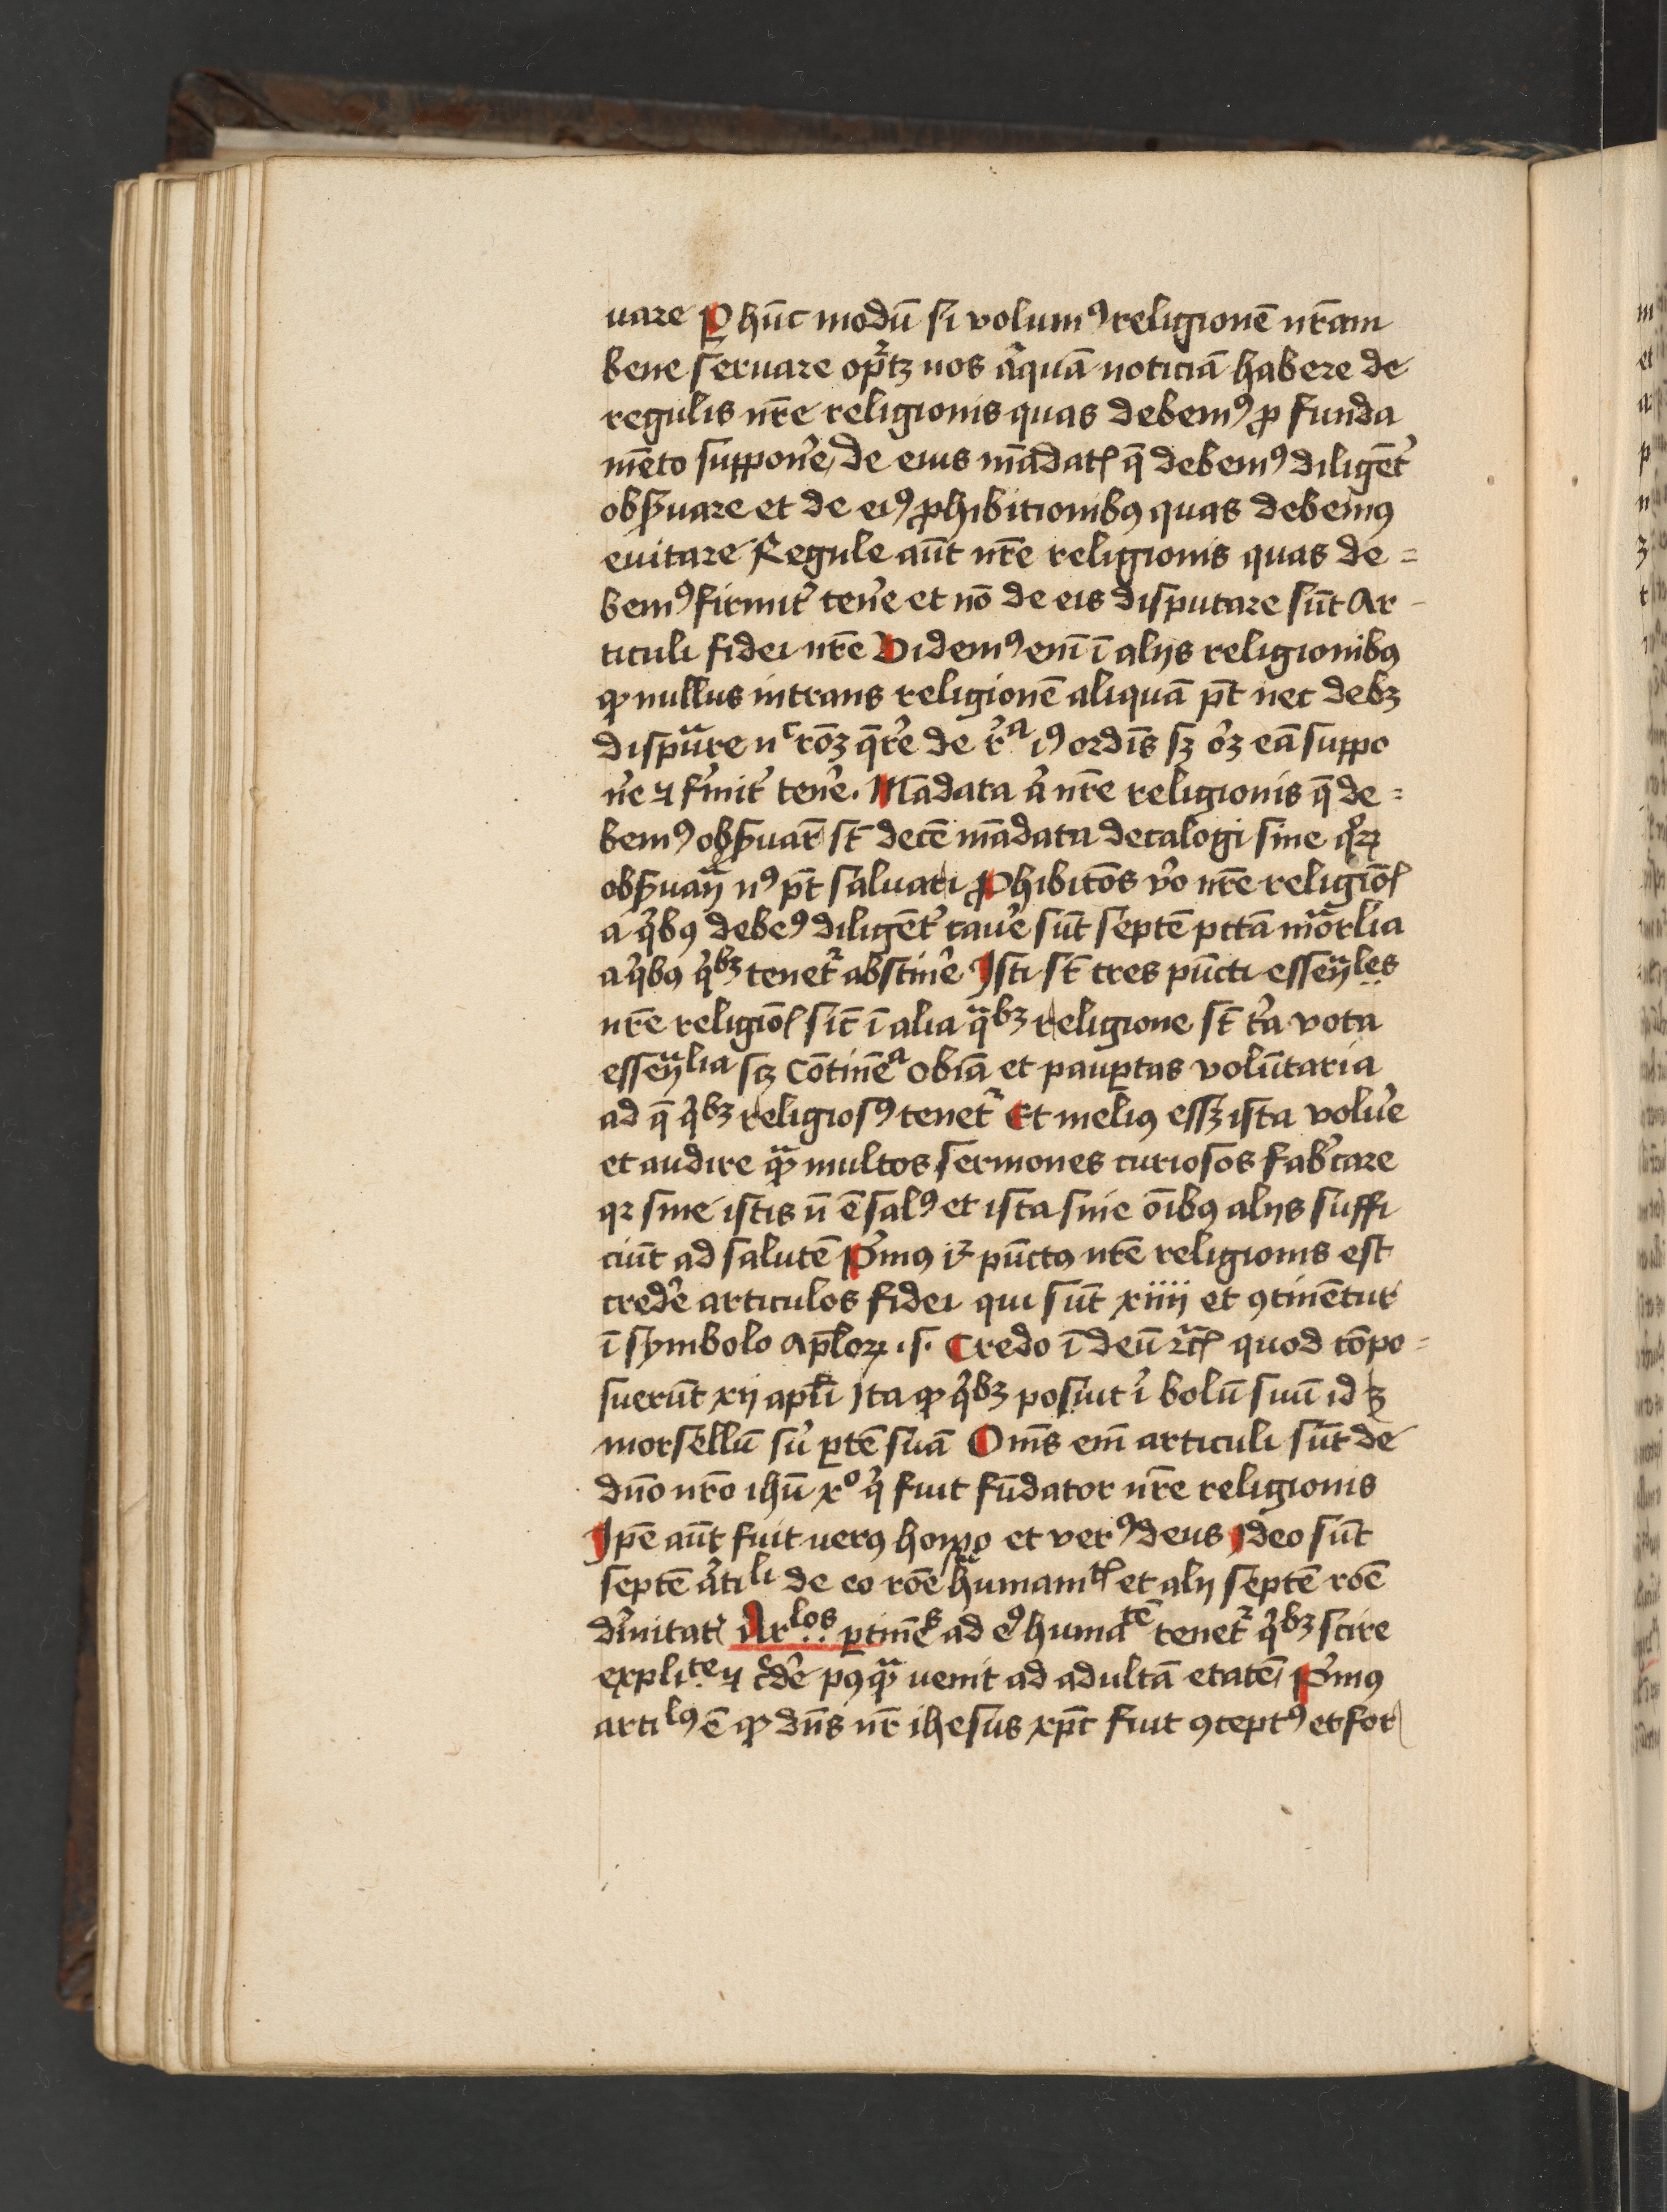 uare Ꝑ hūc modū si volumꝰ religionē nr̄am
bene seruare oportꝫ nos aliquā noticiā habere de
regulis nr̄e religionis quas debemꝰ ꝓ funda
mēto suppone᷑ de eius mādatꝭ q̄ debemꝰ diligēt᷑
obẜuare et de eiꝰ ꝓhibitionibꝰ quas debemꝰ
euitare Regule aūt nr̄e religionis quas de=
bemꝰ firmit᷑ tene᷑ et nō de eis disputare sūt Ar-
ticuli fidei nr̄e Videmꝰ em̄ ī alijs religionibꝰ
ꝙ nullus intrans religionē aliquā pt̄ nec debꝫ
disputare nᶜ rōꝫ q̄re᷑ de rᵃ iꝰ ordīs sꝫ oꝫ eā suppo
ne᷑ ⁊ firmit᷑ tene᷑. Mādata a᷑ nr̄e religionis q̄ de=
bemꝰ obẜuar̄ st̄ decē mādata decalogi sine qͦꝝ
obẜuatiā nꝰ pt̄ saluari ꝓhibitōs v᷑o nr̄e religiōꝭ
a qͥbꝰ debeꝰ diligēt᷑ caue᷑ sūt septē pctā mortalia
a qͥbꝰ qͥbꝫ tenet᷑ abstine᷑ Isti st̄ tres pūcti essentiales
nr̄e religiōꝭ sic̄ ī alia qͣbꝫ religione st̄ tͥa vota
essentialia scꝫ Cōtinēᵃ obīa et pauꝑtas volūtaria
ad q̄ qͥbꝫ religiosꝰ tenet᷑ Et meliꝰ essꝫ ista volue᷑
et audire qͣꝫ multos sermones curiosos fabͥcare
qꝛ sine istis n̄ ē salꝰ et ista sine oībꝰ alijs suffi
ciūt ad salutē Pͥmꝰ iͥ pūctꝰ nr̄e religionis est
crede᷑ articulos fidei qui sūt xiiii et ꝯtinētur
ī symbolo Apl̄oꝝ .s. Credo ī deū ⁊cꝭ quod cōpo=
suerūt xij apl̄i Ita ꝙ qͥbꝫ posuit ī bolū suū id ē
morsellū su᷑ ꝑtē suā Om̄s em̄ articuli sūt de
dn̄o nr̄o ihū xº qͥ fuit fūdator nr̄e religionis
Ipē aūt fuit verꝰ homo et verꝰ deus Ideo sūt
septē artiˡⁱ de eo rōe humanitꝭ et alij septē rōe
diuinitatꝭ Arˡᵒˢ ꝑtinētˢ ad eꝰ humaᵗᵉ̄ tenet᷑ qͥbꝫ scire
expliᵗᵉ ⁊ cde᷑ pꝰqͣꝫ venit ad adultā etatē Pͥmꝰ
artiˡꝰ ē ꝙ dn̄s nr̄ ihesus xp̄c fuit ꝯceptꝰ et for